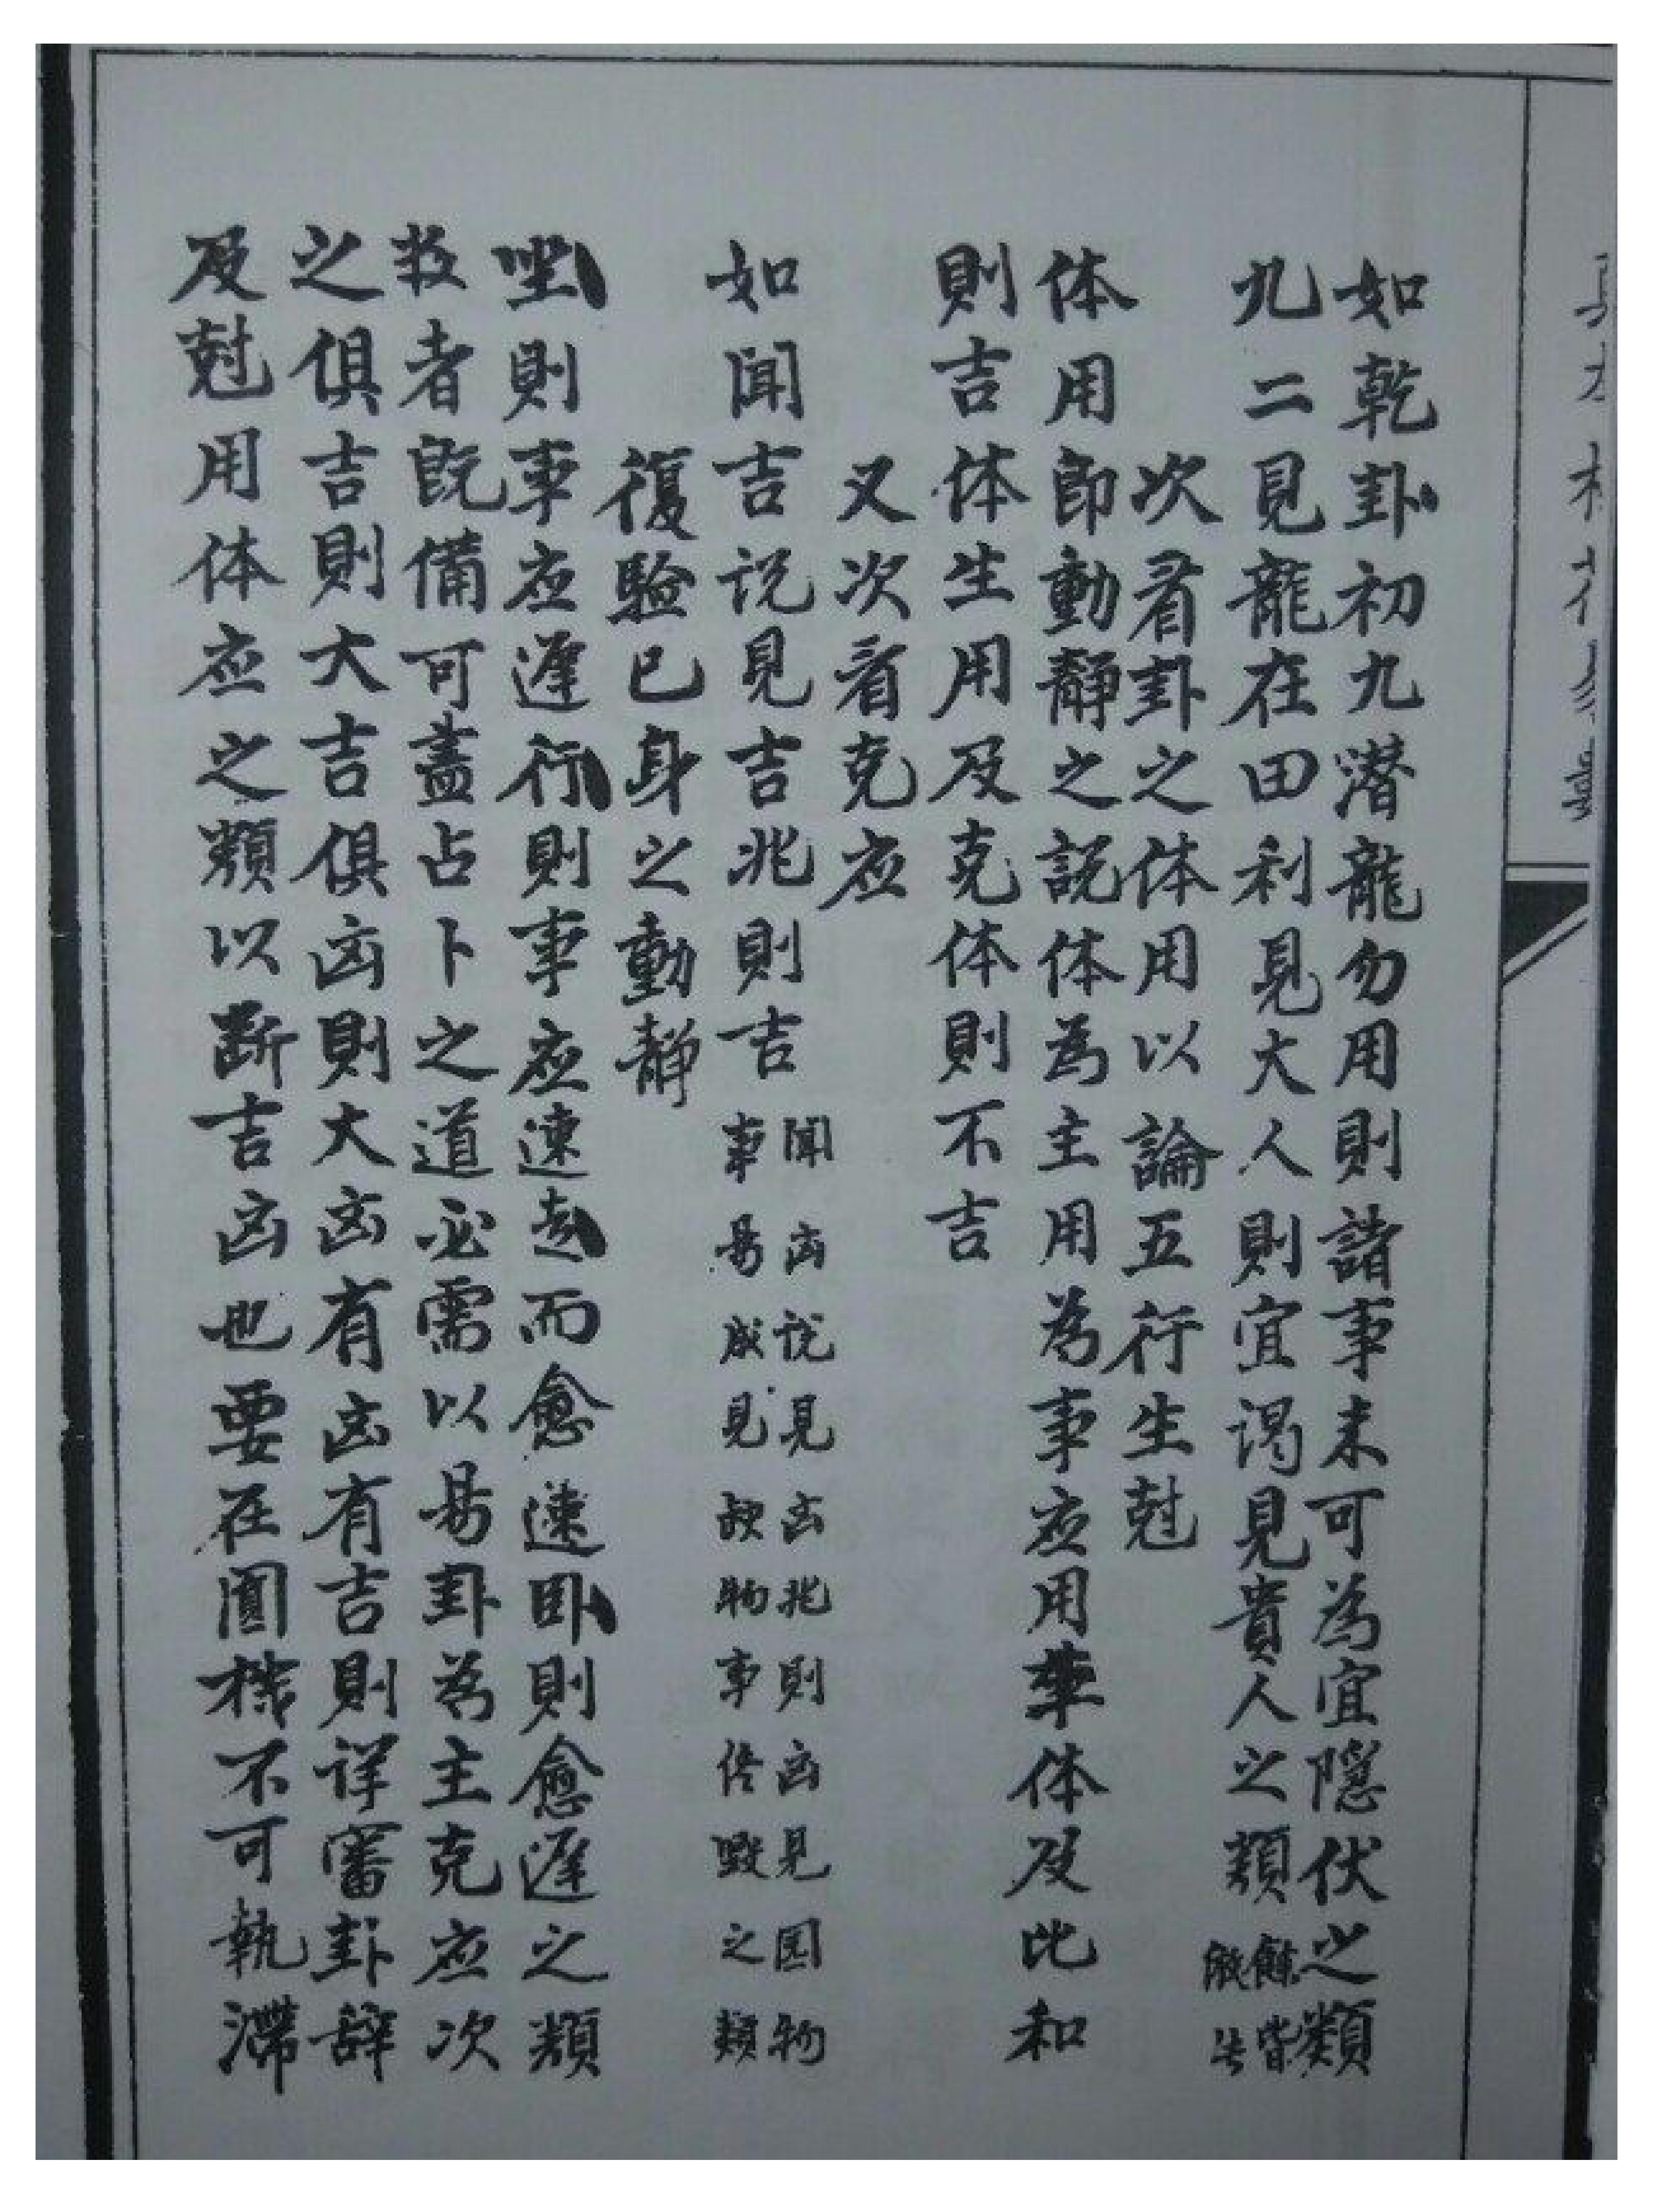 如乾卦初九潜龍勿用則諸事未可為宜隱伏之類
九二見龍在田利見大人則宜谒見貴人之類
餘皆
倣此
次看卦之体用以論五行生尅
体用即動靜之説体為主用為事应用事体及比和
則吉体生用及克体則不吉
又次看克应
如闻吉说見吉兆則吉
闻凶说見凶兆則凶見圆物
事易成見缺物事終毁之類
復驗已身之動靜
坐則事应遲行則事应速走而愈速卧則愈遲之類
数者既備可盡占卜之道必需以易卦為主克应次
之俱吉則大吉俱凶則大凶有凶有吉則详審卦辞
及尅用体应之類以断吉凶也要在圓機不可執滞